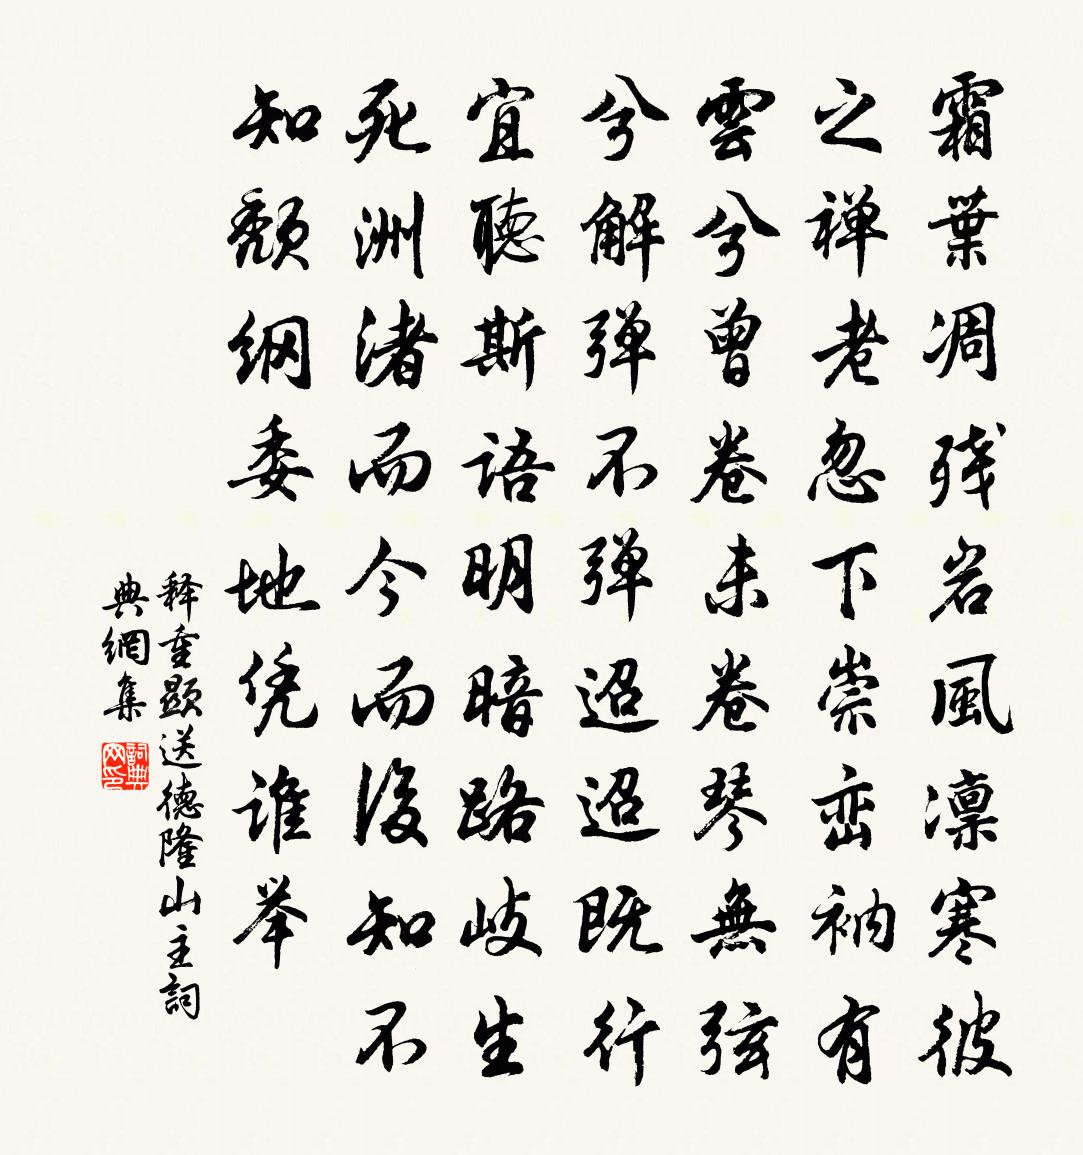 霜葉凋残岩風凛寒彼
之禅老忽下崇峦衲有
雲兮曾卷未卷琴無弦
兮解弹不弹迢迢既行
宜聽斯語明暗路岐生
死洲渚而今而後知不
知頽纲委地凭谁举
释重顯送德隆山主詞
典網集
詞典网印